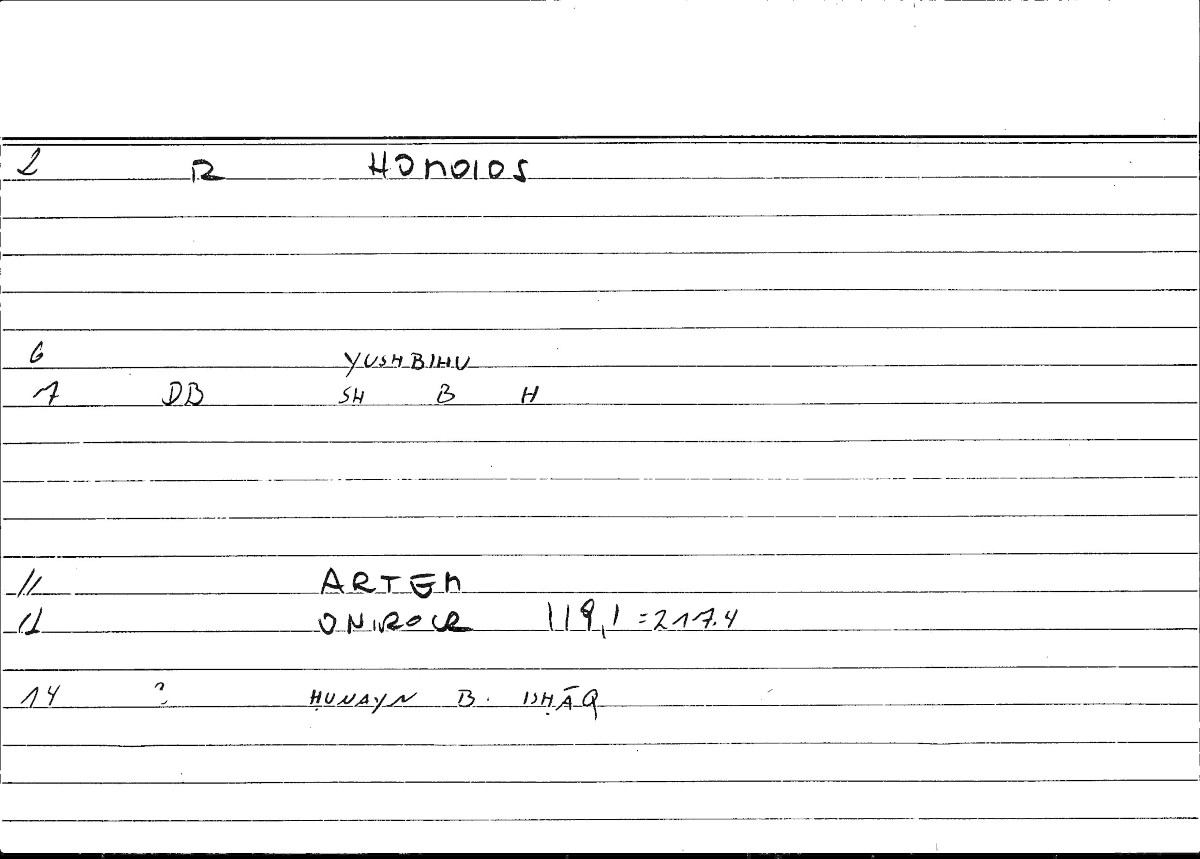 2 R HOMOIOS
6 YUSHBIHU
7 DB SH B H
11 ARTEM
12 ONIROCR 119,1 = 217.4
14 ? ḤUNAYN B. ISḤĀQ